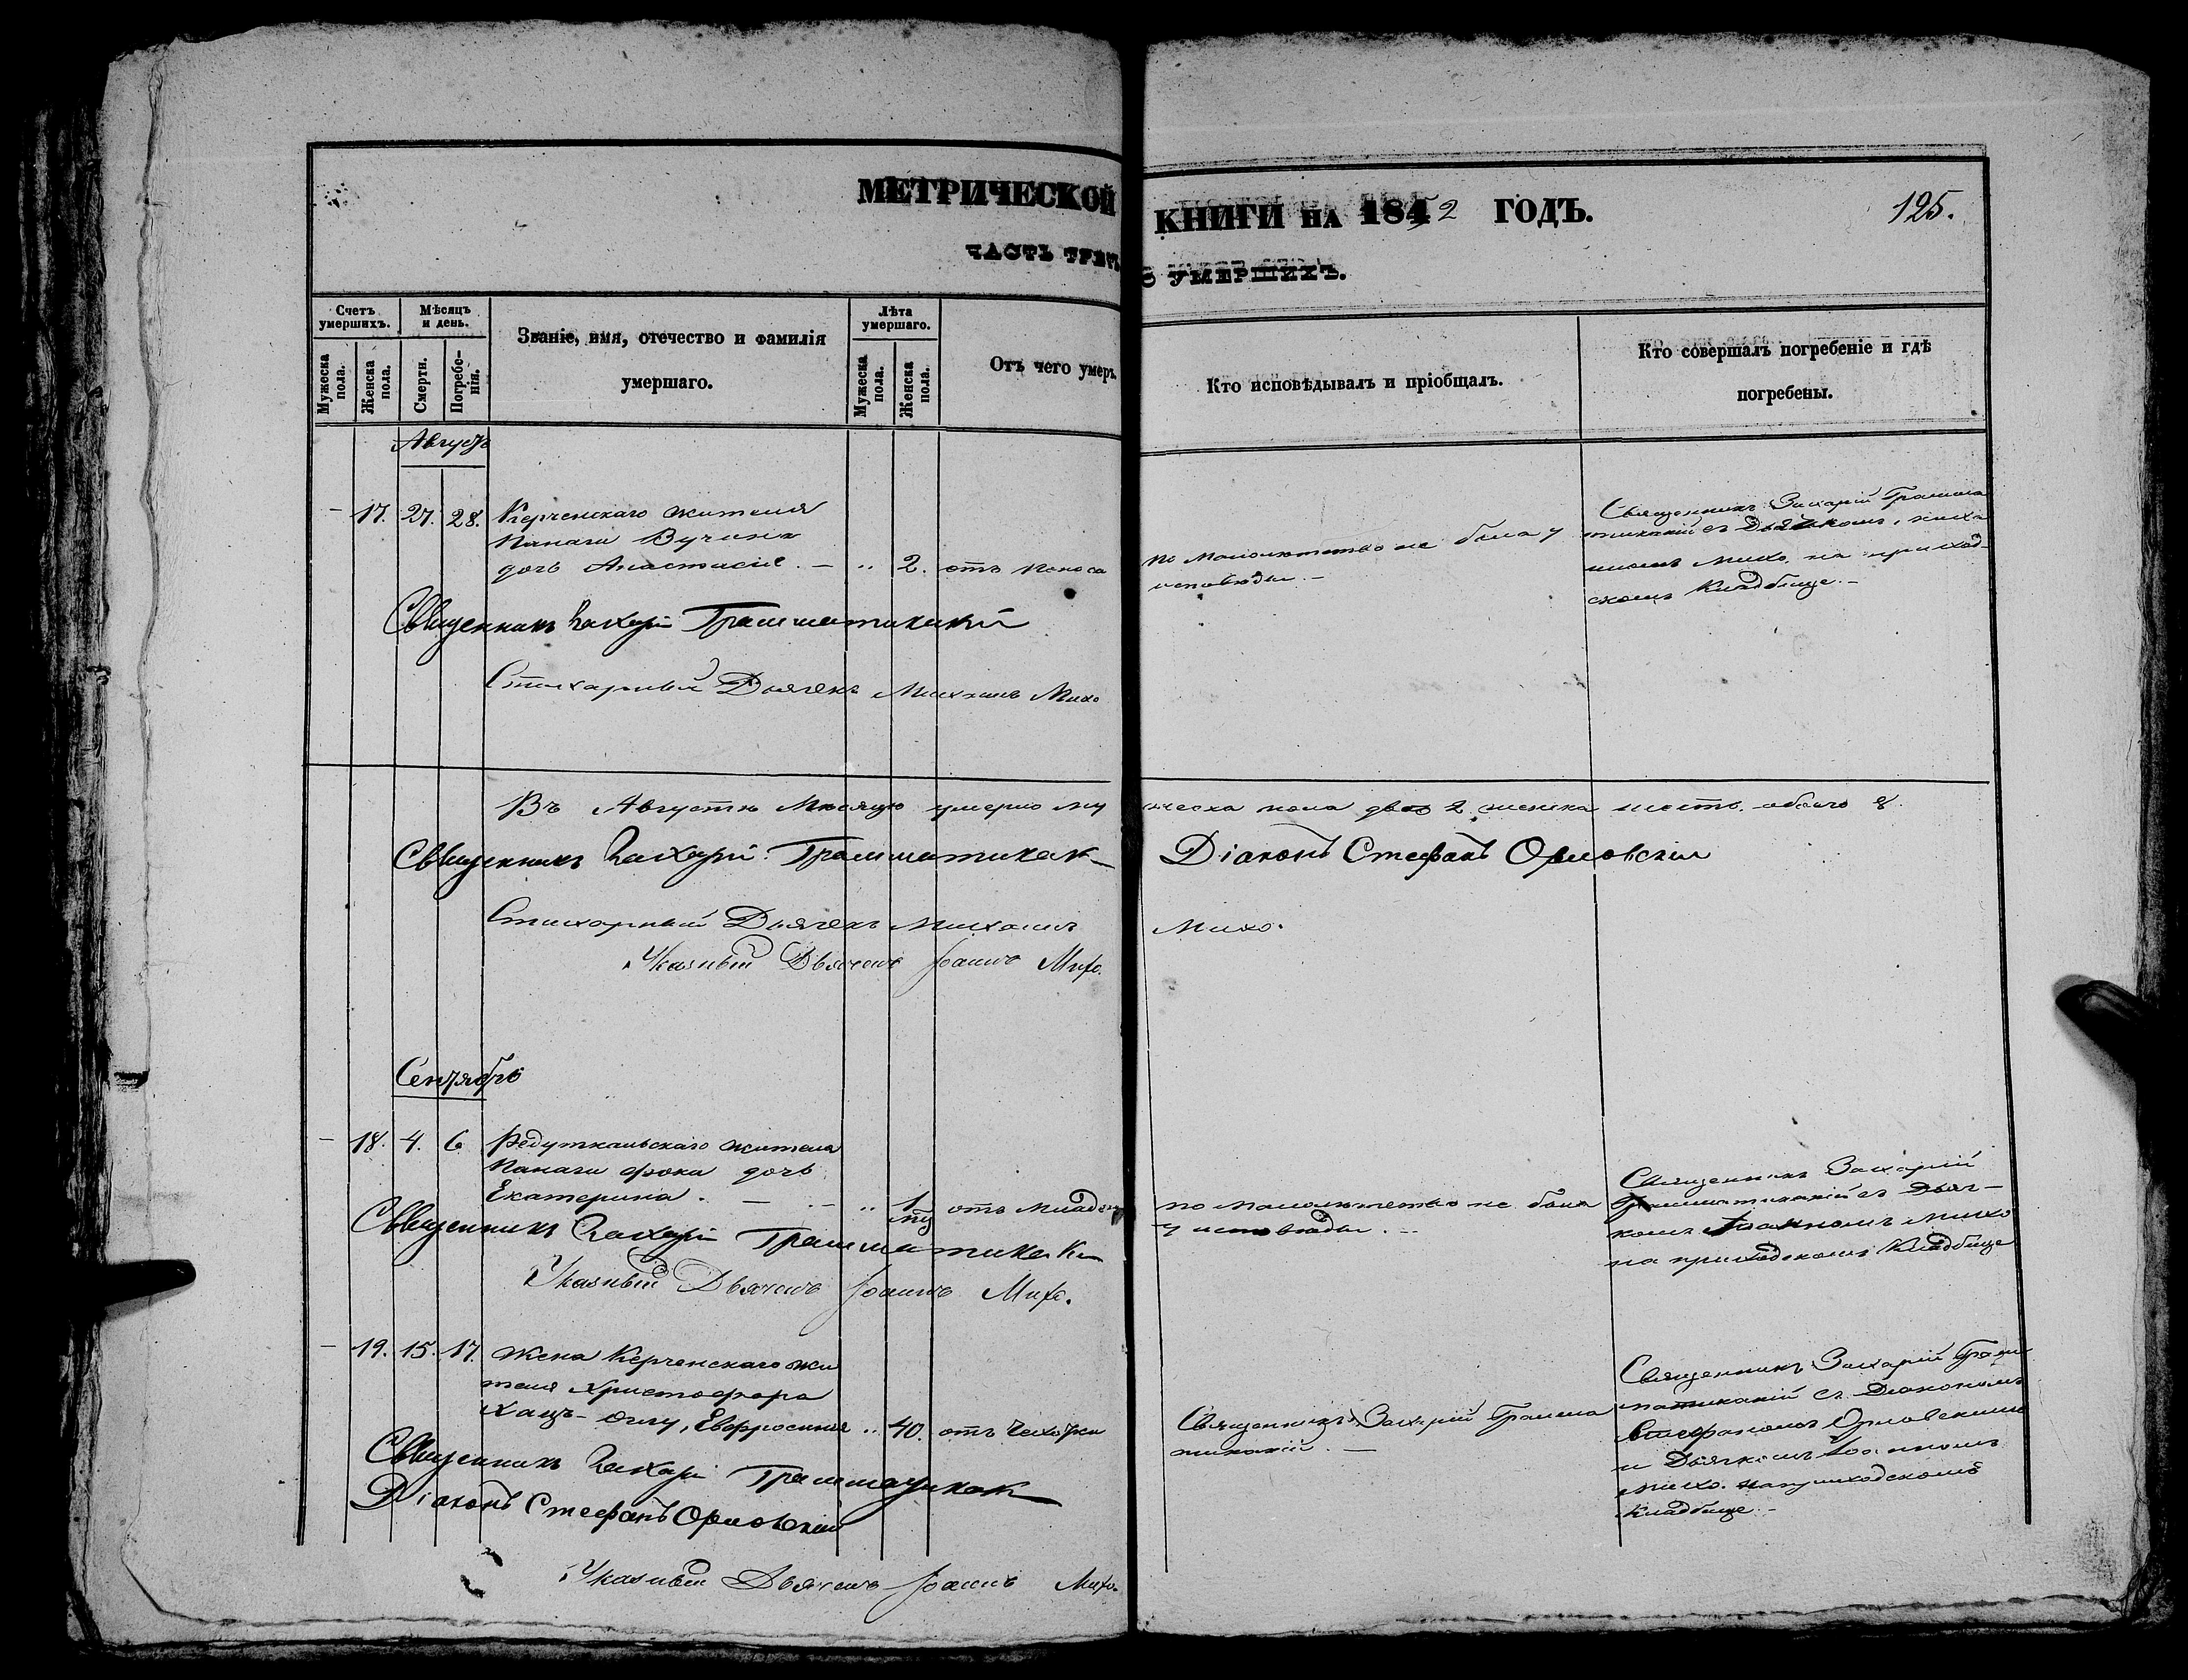 МЕТРИЧЕСКОЙ КНИГИ НА 1842 ГОДЪ.
125.
ЧАСТЬ ТРЕТ УМЕРШИХЪ.
Счетъ умершихъ.
Мужеска пола.
Женска пола.
Мѣсяцъ и день.
Смерти.
Погребе-нія.
Званіе, имя, отечество и фамилія
умершаго.
Лѣта умершаго.
Мужеска пола.
Женска пола.
Отъ чего умеръ.
Кто исповѣдывалъ и пріобщалъ.
Кто совершалъ погребеніе и гдѣ
погребены.
Августъ
- 17. 27. 28. Керченскаго жителя
Панаги
дочь Анастасія. - " 2. отъ поноса
по малолѣтству не была у
исповѣди. -
Священникъ Захарій Грамма
тикакій съ Дьячкомъ, миха
иломъ михо, на приход-
скомъ кладбище. -
Священникъ Захарій Грамматикакій
Стихарный Дьячекъ Михаилъ Михо
Въ Августѣ Мѣсяцѣ умерло му
жеска пола два 2. женска шесть. обоего 8.
Священникъ Захарій Грамматикаки
Діаконъ Стефанъ Орловскій
Стихарный Дьячекъ Михаилъ Михо.
Указный Дьячекъ Іоаннъ Михо.
Сентябрь
- 18. 4. 6 Редуткальскаго жителя
Панаги фока дочь
Екатерина. - - " 1 отъ младен
по малолѣтству не была
у исповѣди. -
Священникъ Захарій
Грамматикакій съ Дьяч-
комъ Іоанномъ Михо
на приходскомъ Кладбище
Священникъ Захарій Грамматикаки
Указный Дьячекъ Іоаннъ Михо.
- 19. 15. 17. Жена Керченскаго жи
теля Христофора
Хацъ-оглу, Евфросинія " 40. отъ чахотки
Священникъ Захарій Грамма
тикакій. -
Священникъ Захарій Грам
матикакій съ Діакономъ
Стефаномъ Орловскимъ
и Дьячкомъ Іоанномъ
михо. на приходскомъ
Кладбище. -
Священникъ Захарій Грамматикаки
Діаконъ Стефанъ Орловскій
Указный Дьячекъ Іоаннъ Михо.